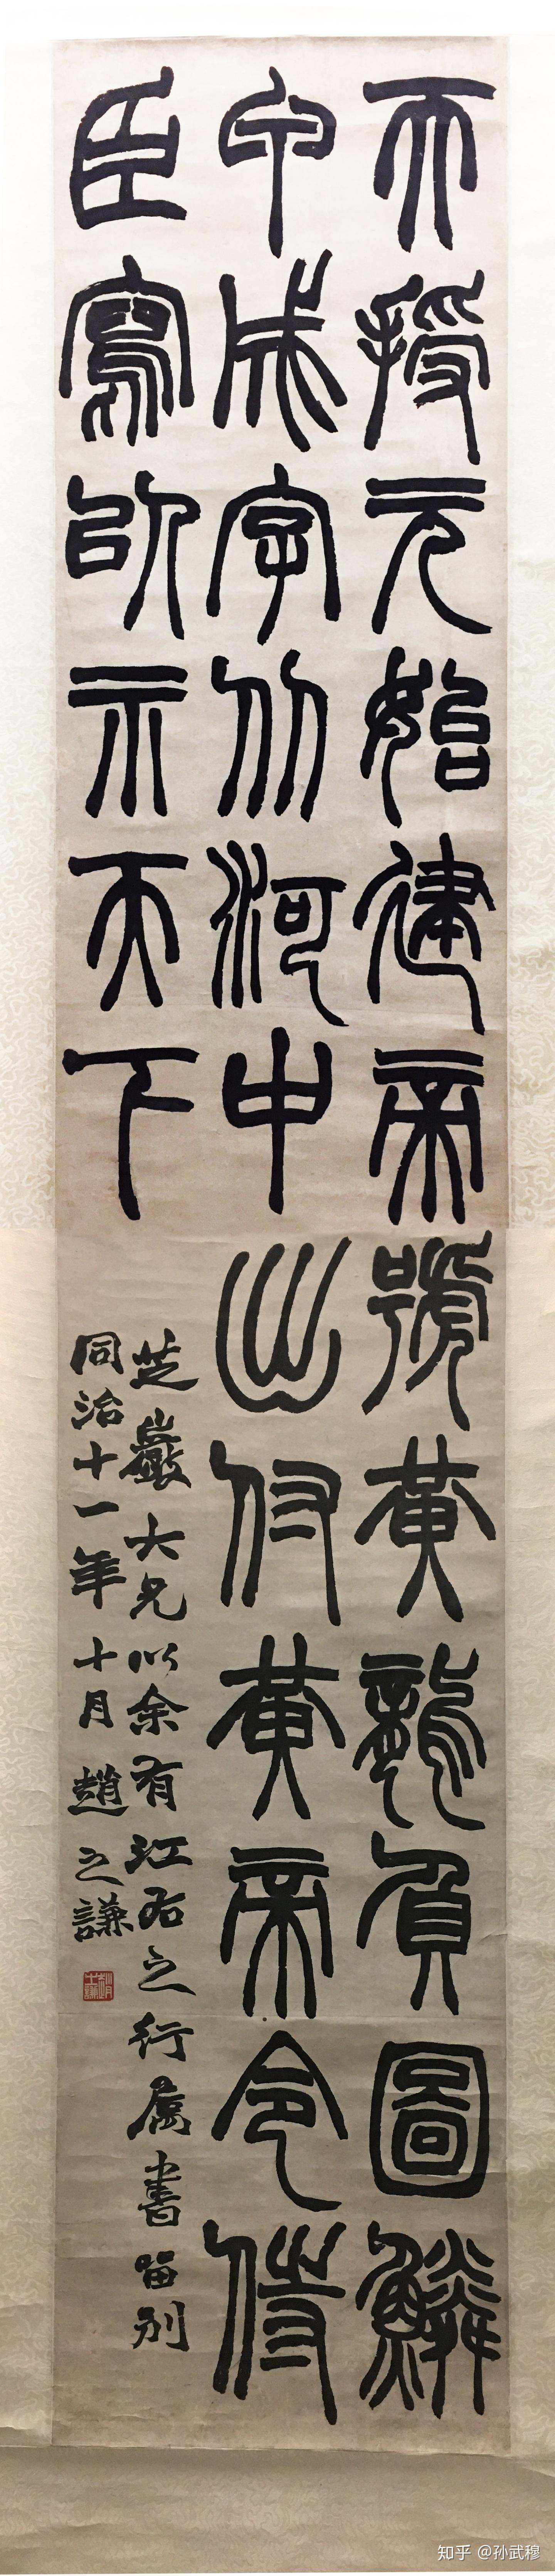 天授元始建帝號黃龍負圖鱗
甲成字从河中出付黃帝令侍
臣寫㕥示天下
芝巖大兄以余有江右之行属書留別
同治十一年十月趙之謙
知乎 @孙武穆